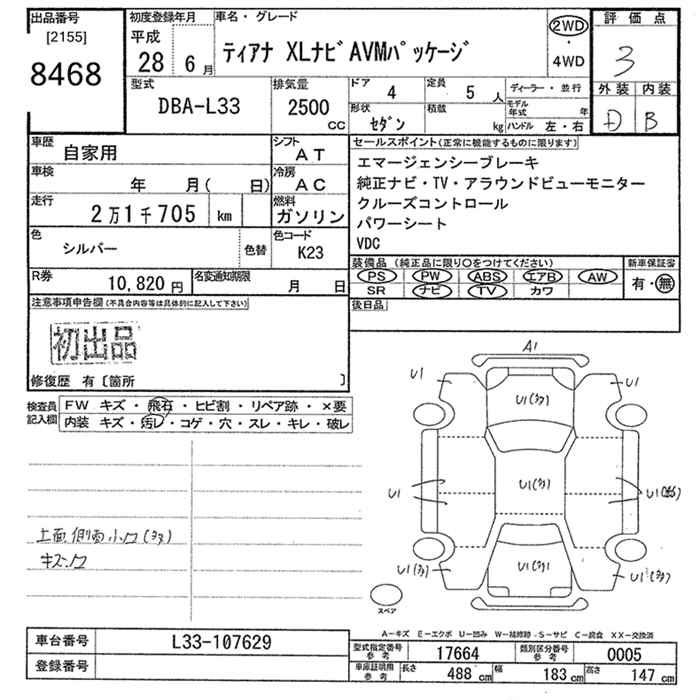 出品番号 初度登録年月 車名・グレード 2WD 評価点
[2155] 平成
8468 28 6月 ティアナ XLナビAVMパッケージ ・ 3
4WD
型式 排気量 ドア 4 定員 5人 ディーラー・並行 外装 内装
DBA-L33 2500 CC 形状 セダン 積載 kg モデル年式 年 D B
ハンドル 左・右
車歴 自家用 シフト AT セールスポイント(正常に機能するものに限ります)
車検 年 月( 日) 冷房 AC エマージェンシーブレーキ
純正ナビ・TV・アラウンドビューモニター
走行 2万1千705 km 燃料 ガソリン クルーズコントロール
パワーシート
色 シルバー 色替 色コード K23 VDC
装備品(純正品に限り○をつけてください) 新車保証書
R券 10,820円 名変通知期限 月 日 PS PW ABS エアB AW 有・無
SR ナビ TV カワ
注意事項申告欄(不具合内容等は具体的に記入して下さい) 後日品
初出品
修復歴 有〔箇所 〕
検査員記入欄 FW キズ・飛石・ヒビ割・リペア跡・×要
内装 キズ・汚レ・コゲ・穴・スレ・キレ・破レ
A1
U1 U1
U1(多)
U1 U1(多) U1(多)
上面、側面小凹(多)
キズ凹
U1(多) U1(多) U1(多)
スペア
A－キズ E－エクボ U－凹み W－補修跡 S－サビ C－腐食 XX－交換済
車台番号 L33-107629 型式指定番号参考 17664 類別区分番号参考 0005
登録番号 車庫証明用参考 長さ 488cm 幅 183cm 高さ 147cm